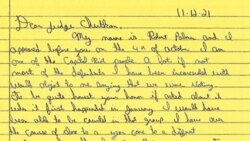 11-12-21
Dear Judge Chutkan,
My name is Robert Palmer and I
appeared before you on the 4th of October. I am
one of the Capitol Riot people. A lot if not
most of the defendants I have been incarcerated with
would object to me saying that we were rioting.
To be quite honest your honor if asked about it
when it first happened in January I would have
been able to be counted in that group. I have over
the course of close to a year come to a different